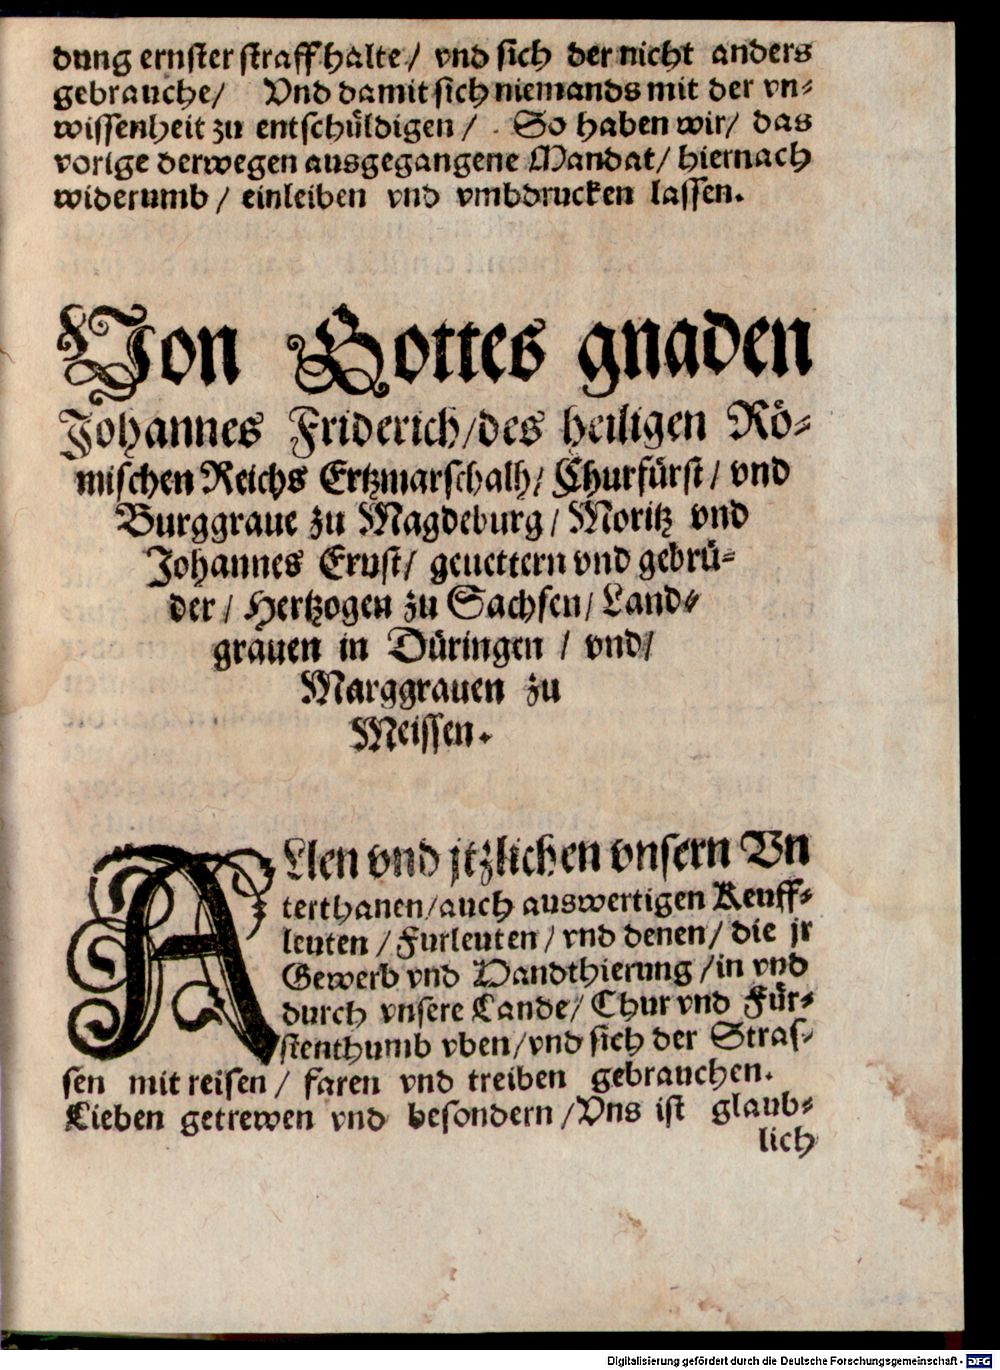 dung ernster straff halte / vnd sich der nicht anders
gebrauche / Vnd damit sich niemands mit der vn-
wissenheit zu entschüldigen / So haben wir / das
vorige derwegen ausgegangene Mandat / hiernach
widerumb / einleiben vnd vmbdrucken lassen.
Von Gottes gnaden
Johannes Friderich / des heiligen Rö-
mischen Reichs Ertzmarschalh / Churfürst / vnd
Burggraue zu Magdeburg / Moritz vnd
Johannes Ernst / geuettern vnd gebrü-
der / Hertzogen zu Sachsen / Land-
grauen in Düringen / vnd /
Marggrauen zu
Meissen.
ALlen vnd jtzlichen vnsern Vn
terthanen / auch auswertigen Keuff-
leuten / Furleuten / vnd denen / die jr
Gewerb vnd Handthierung / in vnd
durch vnsere Lande / Chur vnd Für-
stenthumb vben / vnd sich der Stras-
sen mit reisen / faren vnd treiben gebrauchen.
Lieben getrewen vnd besondern / Vns ist glaub-
lich
Digitalisierung gefördert durch die Deutsche Forschungsgemeinschaft - DFG